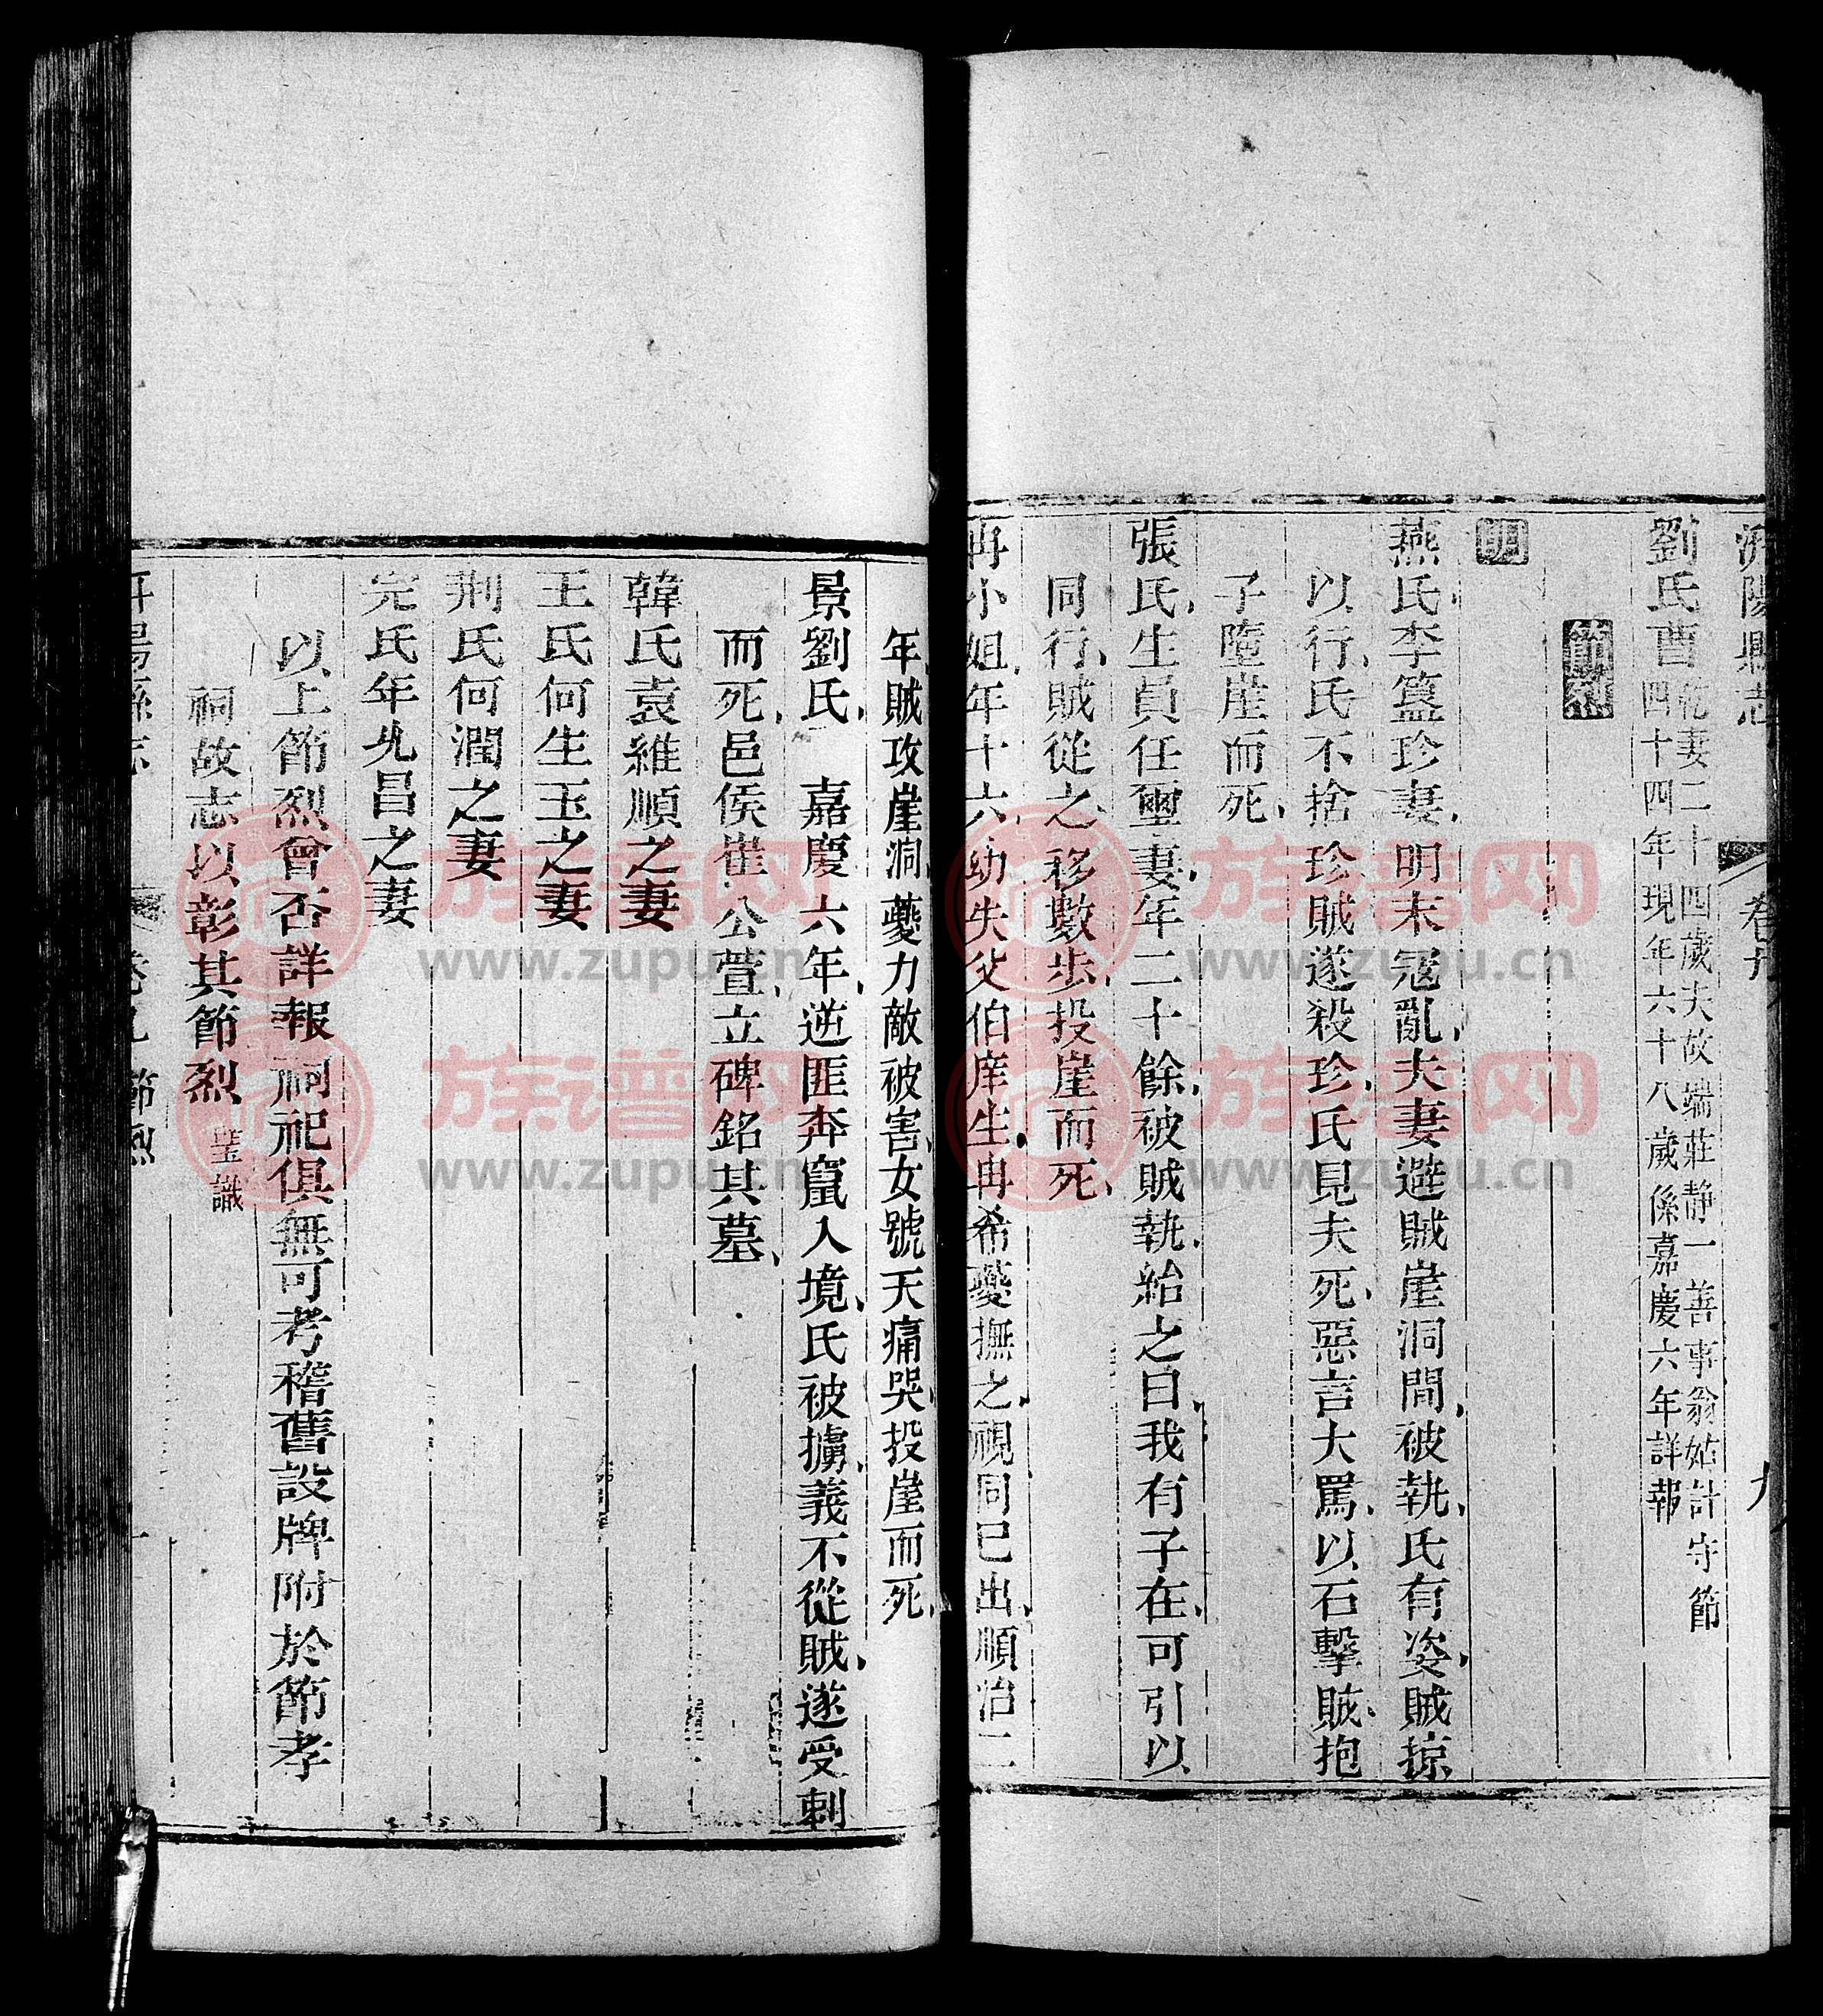 汧陽縣志 卷九 九
劉氏曹乾妻二十四歲夫故端莊靜一善事翁姑計守節
四十四年現年六十八歲係嘉慶六年詳報
節烈
明
燕氏李簋珍妻明末冦亂夫妻避賊崖洞間被執氏有姿賊掠
以行氏不捨珍賊遂殺珍氏見夫死惡言大罵以石擊賊抱
子墮崖而死
張氏生員任璽妻年二十餘被賊執紿之曰我有子在可引以
同行賊從之移數步投崖而死
冉小姐年十六幼失父伯庠生冉希夔撫之視同己出順治二
年賊攻崖洞夔力敵被害女號天痛哭投崖而死
景劉氏 嘉慶六年逆匪奔竄入境氏被擄義不從賊遂受刺
而死邑侯崔公萱立碑銘其墓
韓氏袁維順之妻
王氏何生玉之妻
荆氏何潤之妻
完氏年光昌之妻
以上節烈曾否詳報祠祀俱無可考稽舊設牌附於節孝
祠故志以彰其節烈 瑆識
汧陽縣志 卷九 節烈
族谱网
www.zupu.cn
族谱网
www.zupu.cn
族谱网
www.zupu.cn
族谱网
www.zupu.cn